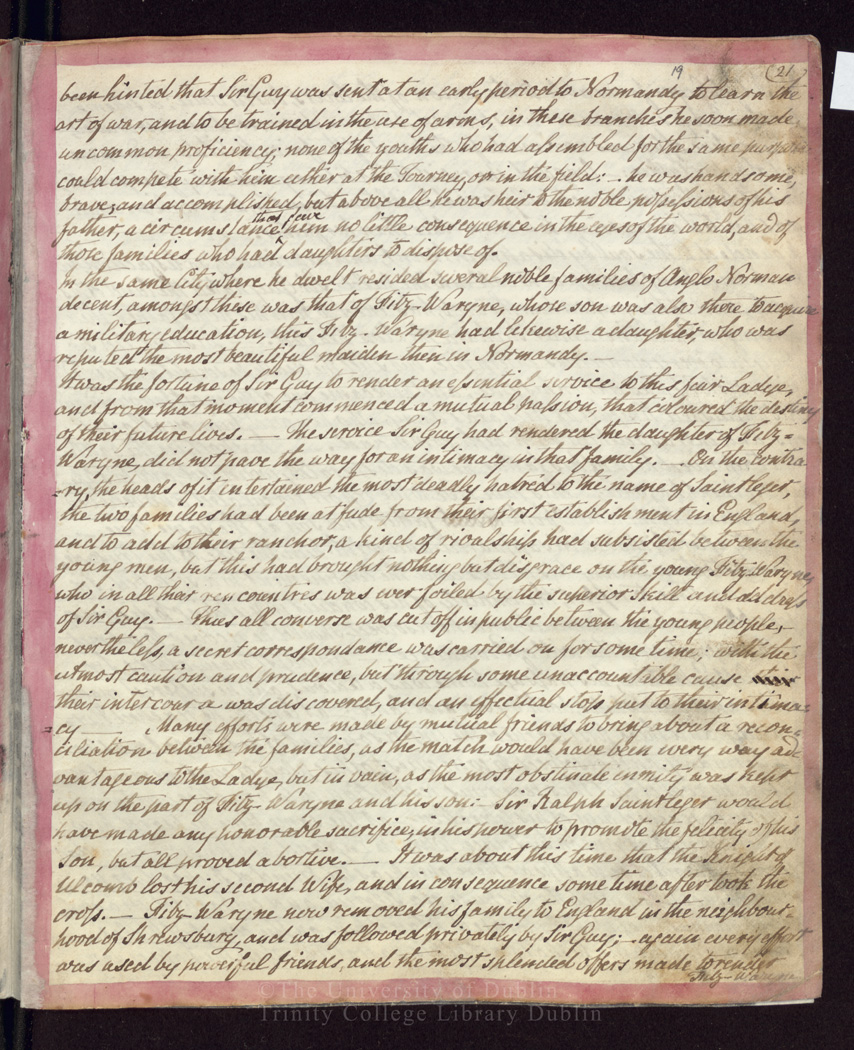 19 (21
been hinted that Sir Guy was sent at an early period to Normandy to learn the
art of war, and to be trained in the use of arms, in these branches he soon made
uncommon proficiency; none of the youths who had assembled for the same purpose
could compete with him either at the Tourney, or in the field: – he was handsome,
brave, and accomplished, but above all he was heir to the noble possessions of his
father, a circumstance that gave him no little consequence in the eyes of the world, and of
those families who had daughters to dispose of.
In the same City where he dwelt resided several noble families of Anglo Norman
decent, amongst these was that of Fitz-Waryne, whose son was also there to acquire
a military education, this Fitz-Waryne had likewise a daughter, who was
reputed the most beautiful maiden then in Normandy. —
It was the fortune of Sir Guy to render an essential service to this fair Ladye,
and from that moment commenced a mutual passion, that coloured the destiny
of their future lives. — The service Sir Guy had rendered the daughter of Fitz=
Waryne, did not pave the way for an intimacy in that family. — On the contra-
-ry, the heads of it intertained the most deadly hatred to the name of Saintleger,
the two families had been at fude from their first establishment in England,
and to add to their ranchor, a kind of rivalship had subsisted between the
young men, but this had brought nothing but disgrace on the young Fitz-Waryne,
who in all their rencountries was ever foiled by the superior skill and address
of Sir Guy. — Thus all converse was cut off in public between the young people, –
nevertheless, a secret correspondance was carried on for some time; with the
utmost caution and prudence, but through some unaccountable cause
their intercourse was discovered, and an effectual stop put to their intima=
=cy — Many efforts were made by mutual friends to bring about a recon=
ciliation between the families, as the match would have been every way ad
vantageous to the Ladye, but in vain, as the most obstinate enmity was kept
up on the part of Fitz-Waryne and his son: – Sir Ralph Saintleger would
have made any honorable sacrifice, in his power to promote the felicity of his
son, but all proved abortive. — It was about this time that the Knight of
Ulcomb lost his second Wife, and in consequence some time after took the
cross. — Fitz-Waryne now removed his family to England in the neighbour=
hood of Shrewsbury, and was followed privately by Sir Guy; – again every effort
was used by powerful friends, and the most splended offers made to render
Fitz-Waryne
The University of Dublin
Trinity College Library Dublin